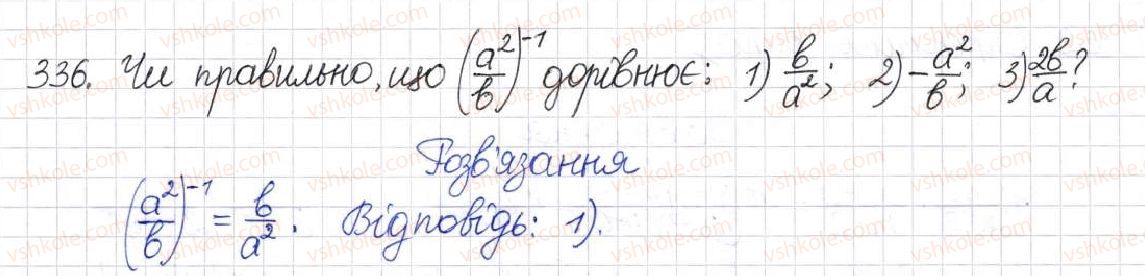 336. Чи правильно, що (a²/b)⁻¹ дорівнює: 1) b/a²; 2) -a²/b; 3) 2b/a?
Розв'язання
(a²/b)⁻¹ = b/a². Відповідь: 1).